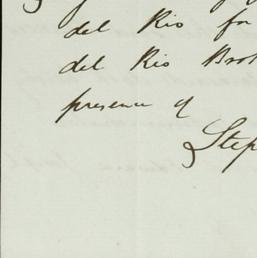 del Rio for
del Rio Brot
presence of
Step